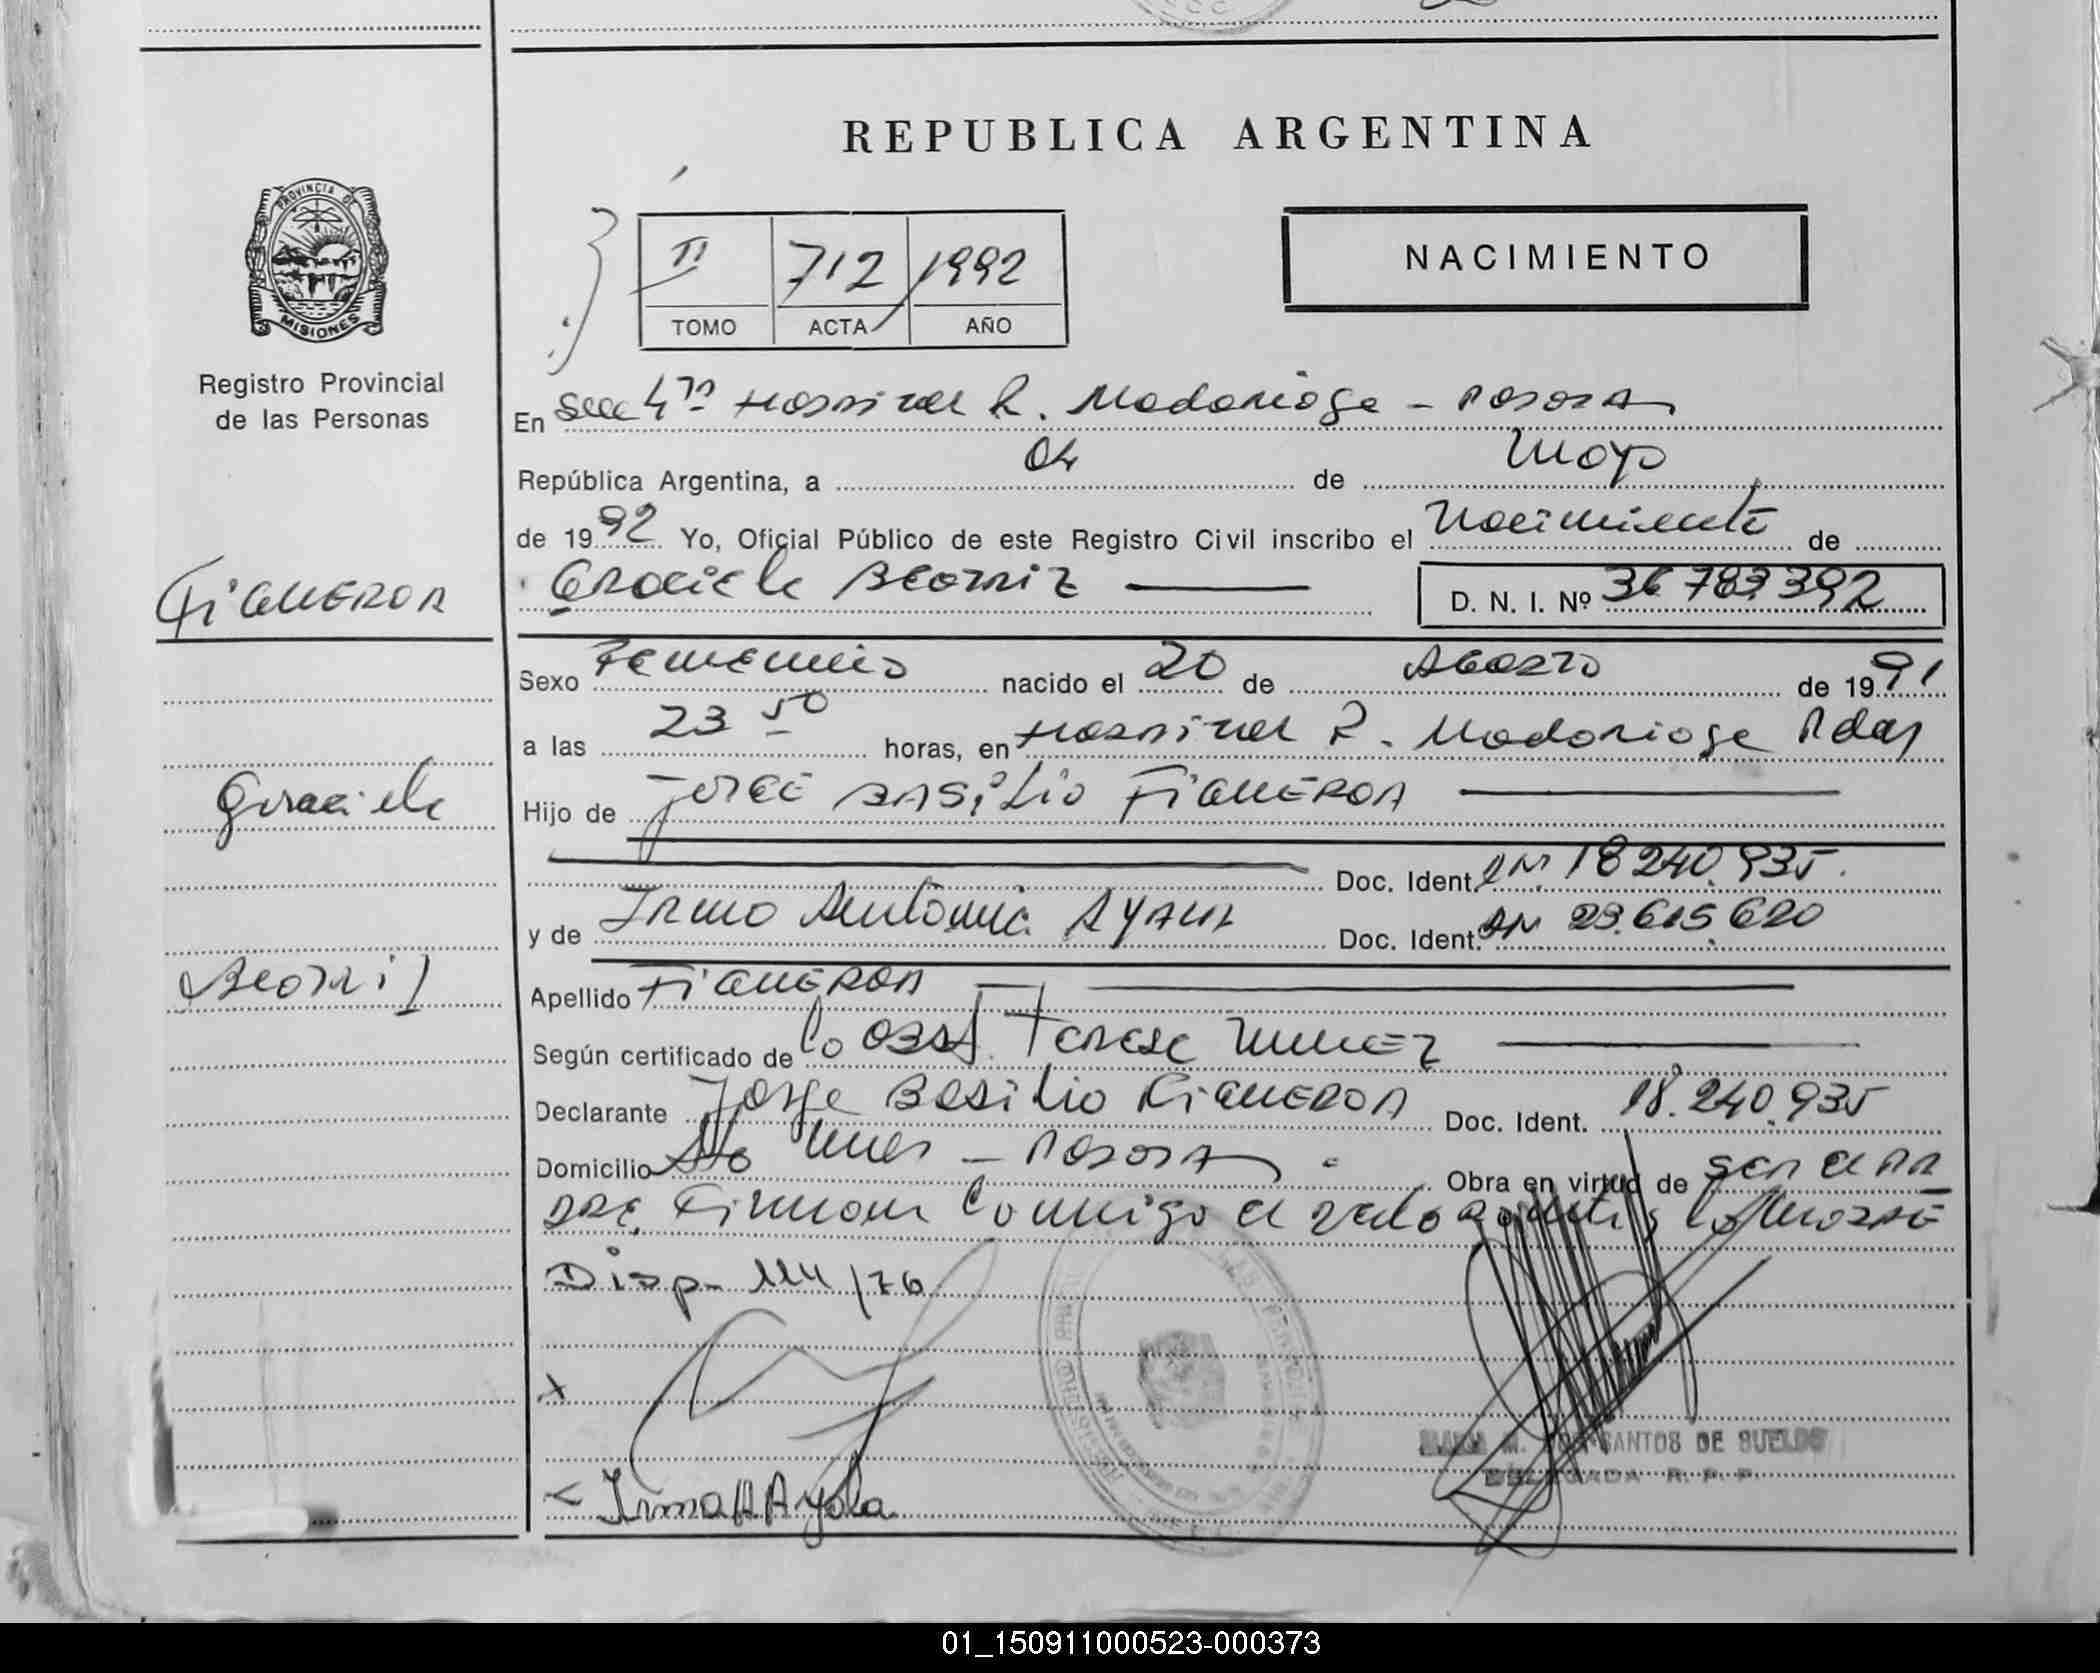 REPUBLICA ARGENTINA
PROVINCIA DE
MISIONES
Registro Provincial
de las Personas
II 712 1992
TOMO ACTA AÑO
NACIMIENTO
En Secc 4ta Hospital R. Madariaga - Posadas
República Argentina, a 04 de Mayo
de 1992 Yo, Oficial Público de este Registro Civil inscribo el Nacimiento de
FIGUEROA
Graciela Beatriz D. N. I. Nº 36 783 392
Sexo Femenino nacido el 20 de Agosto de 1991
a las 23 50 horas, en Hospital R. Madariaga Pdas
Graciela
Hijo de JORGE BASiLio FiGUEROA
Doc. Ident. DNI 18 240.935.
y de Irma Antonia AYALA Doc. Ident. DNI 23.615.620
Beatriz
Apellido FiGUEROA
Según certificado de la Obst. Teresa Nuñez
Declarante Jorge Basilio FiGUEROA Doc. Ident. 18.240.935
Domicilio - Posadas. Obra en virtud de ser el pa
dre, Firman Conmigo el y la madre
Disp- 114/76
x
< Irma A Ayala
SANTOS DE SUELDO
DELEGADA R. P. P.
01_150911000523-000373